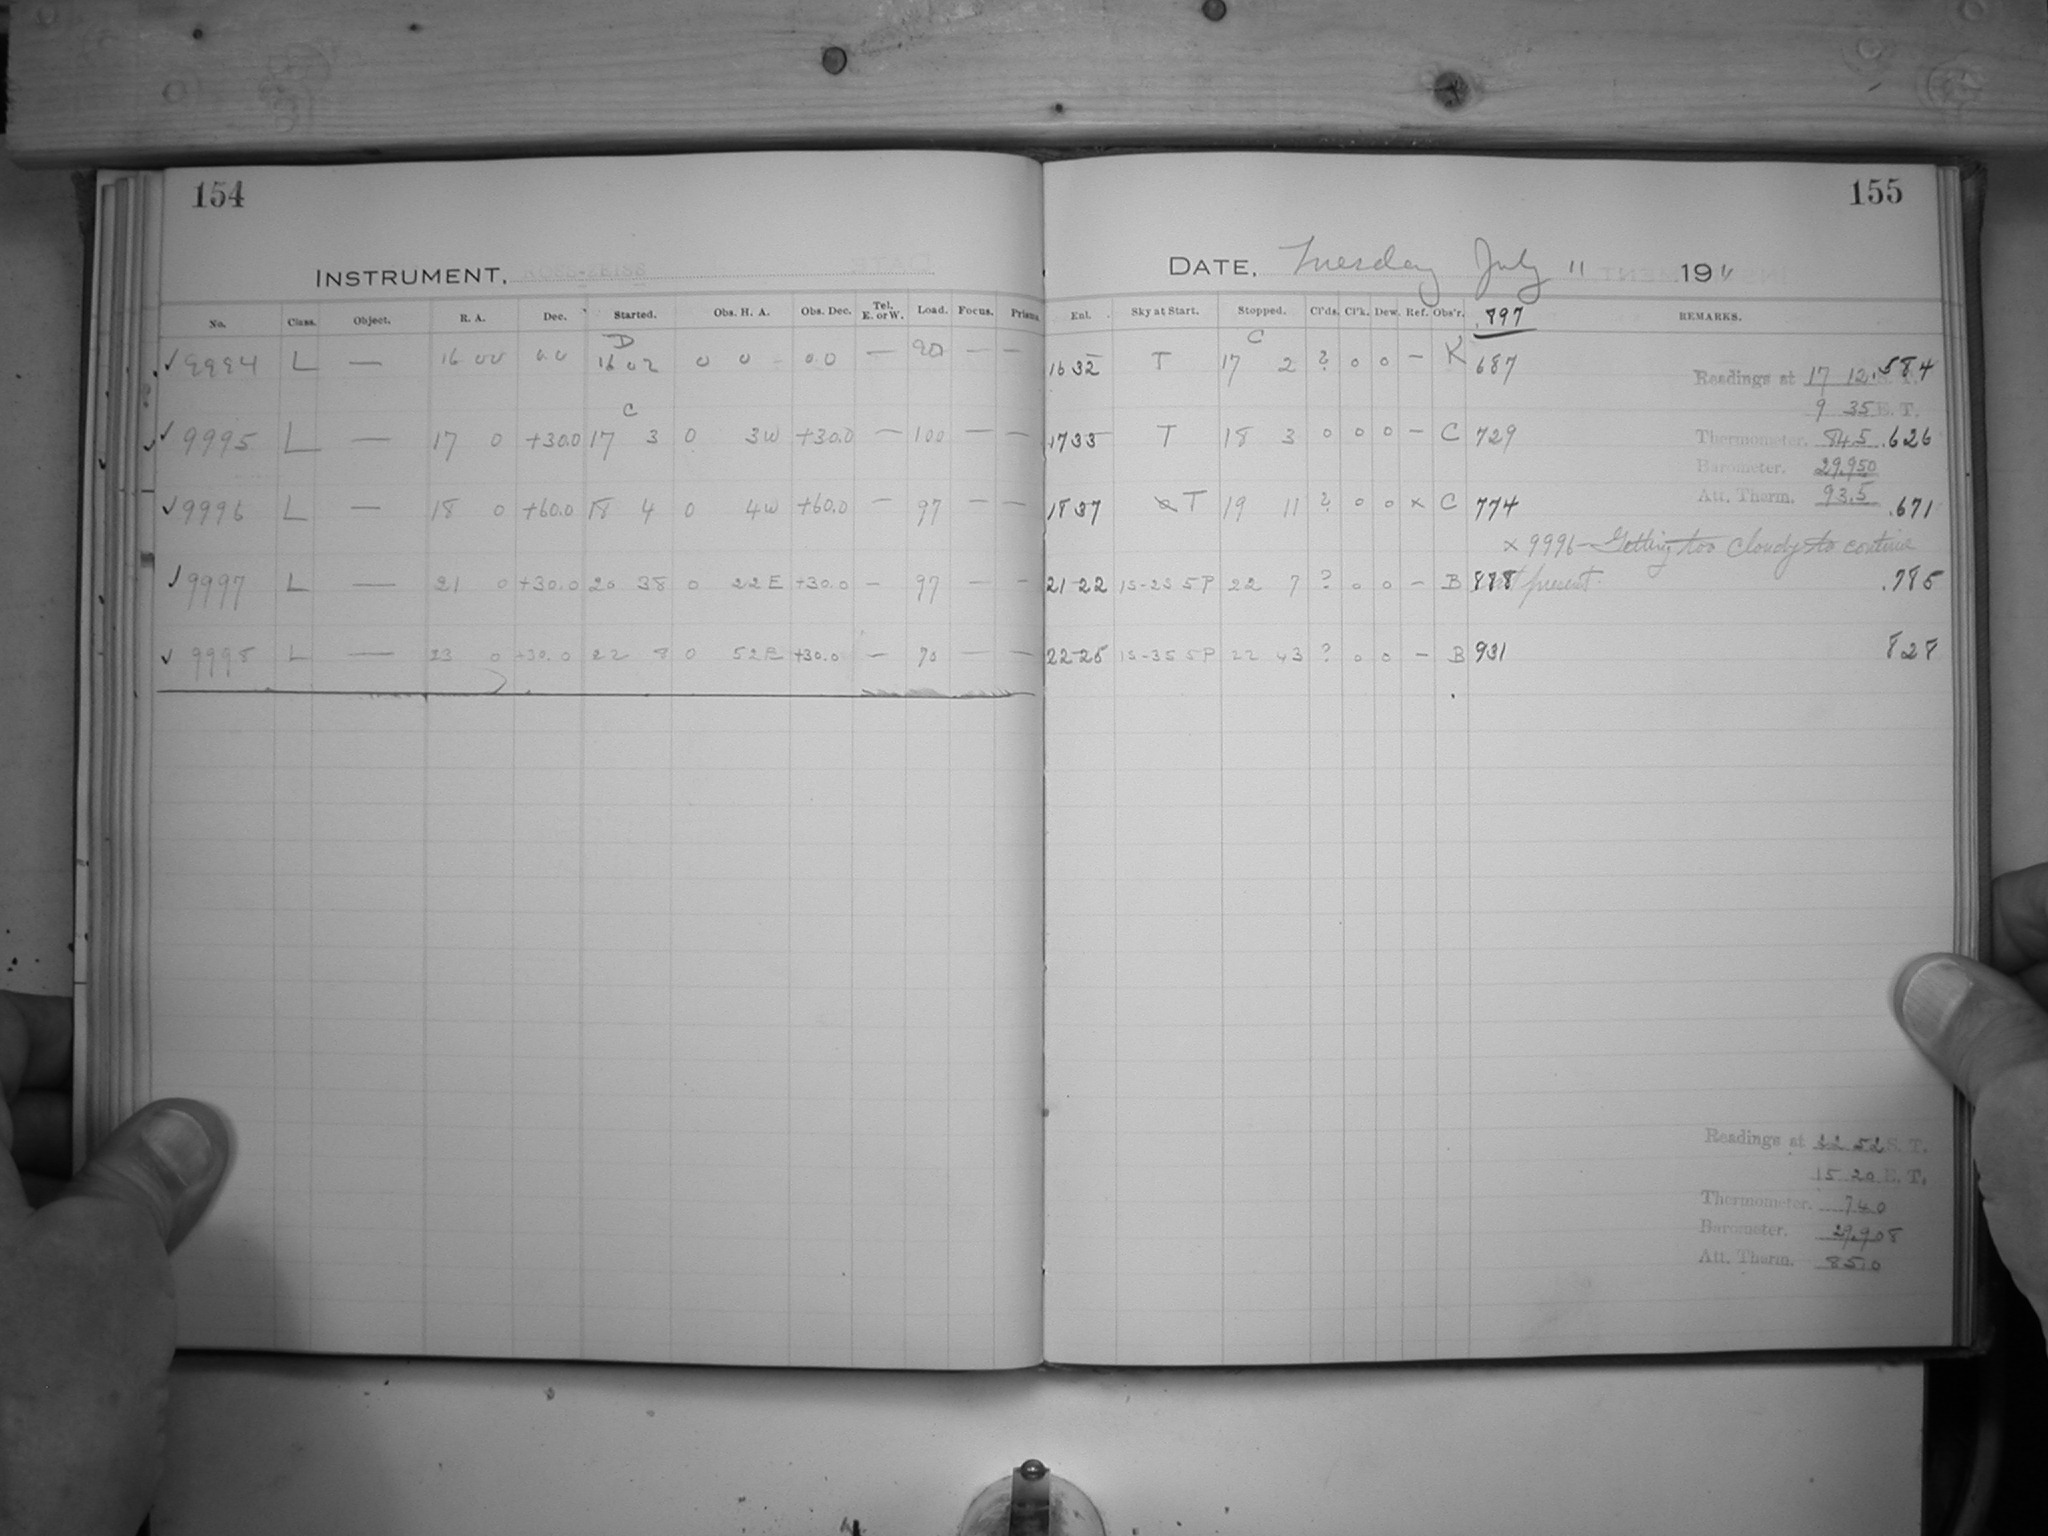 154
155
INSTRUMENT,
DATE, Tuesday July 11 1911
No. Class. Object. R. A. Dec. Started. Obs. H. A. Obs. Dec. Tel. E. or W. Load. Focus. Prisms.
Enl. Sky at Start. Stopped. Cl'ds. Cl'k. Dew. Ref. Obs'r. .897 REMARKS.
D C
✓ 9994 L — 16 00 0.0 16 02 0 0 0.0 — 90 — — 16 32 T 17 2 ? 0 0 — K 687 .584
Readings at 17 12 S. T.
9 35 E. T.
C
✓ 9995 L — 17 0 +30.0 17 3 0 3W +30.0 — 100 — — 17 33 T 18 3 0 0 0 — C 729 .626
Thermometer. 84.5
Barometer. 29.950
Att. Therm. 93.5
✓ 9996 L — 18 0 +60.0 18 4 0 4W +60.0 — 97 — — 18 37 T 19 11 ? 0 0 x C 774 .671
x 9996 — Getting too cloudy to continue
at present.
✓ 9997 L — 21 0 +30.0 20 38 0 22E +30.0 — 97 — — 21 22 1S-2S 5P 22 7 ? 0 0 — B 888 .785
✓ 9998 L — 23 0 +30.0 22 8 0 52E +30.0 — 70 — — 22 25 1S-3S 5P 22 43 ? 0 0 — B 931 828
Readings at 22 52 S. T.
15 20 E. T.
Thermometer. 74.0
Barometer. 29.908
Att. Therm. 85.0